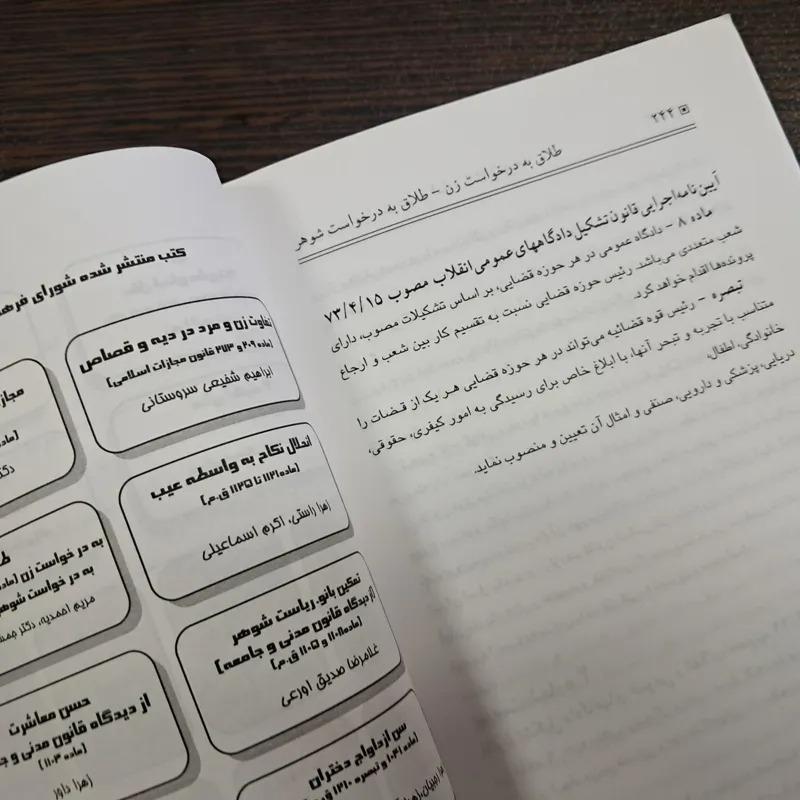 ۲۴۴
طلاق به درخواست زن – طلاق به درخواست شوهر
آیین نامه اجرایی قانون تشکیل دادگاههای عمومی انقلاب مصوب ۷۳/۴/۱۵
ماده ۸ – دادگاه عمومی در هر حوزه قضایی، بر اساس تشکیلات مصوب، دارای
شعب متعددی می‌باشد. رئیس حوزه قضایی نسبت به تقسیم کار بین شعب و ارجاع
پرونده‌ها اقدام خواهد کرد.
تبصره – رئیس قوه قضائیه می‌تواند در هر حوزه قضایی هر یک از قضات را
متناسب با تجربه و تبحر آنها، با ابلاغ خاص برای رسیدگی به امور کیفری، حقوقی،
خانوادگی، اطفال،
دریایی، پزشکی و دارویی، صنفی و امثال آن تعیین و منصوب نماید.
کتب منتشر شده شورای
تفاوت زن و مرد در دیه و قصاص
(ماده ۲۰۹ و ۲۷۳ قانون مجازات اسلامی)
ابراهیم شفیعی سروستانی
انحلال نکاح به واسطه عیب
(ماده ۱۱۲۱ تا ۱۱۲۵ ق.م)
زهرا راستی، اکرم اسماعیلی
به در خواست زن
به در خواست شوهر
مریم احمدیه، دکتر
تمکین بانو، ریاست شوهر
(از دیدگاه قانون مدنی و جامعه)
(ماده ۱۱۰۸ و ۱۱۰۵ ق.م)
غلامرضا صدیق اورعی
حسن معاشرت
از دیدگاه قانون مدنی و
(ماده ۱۱۰۳)
زهرا داور
سن ازدواج دختران
(ماده ۱۰۴۱ و تبصره ۱۲۱۰